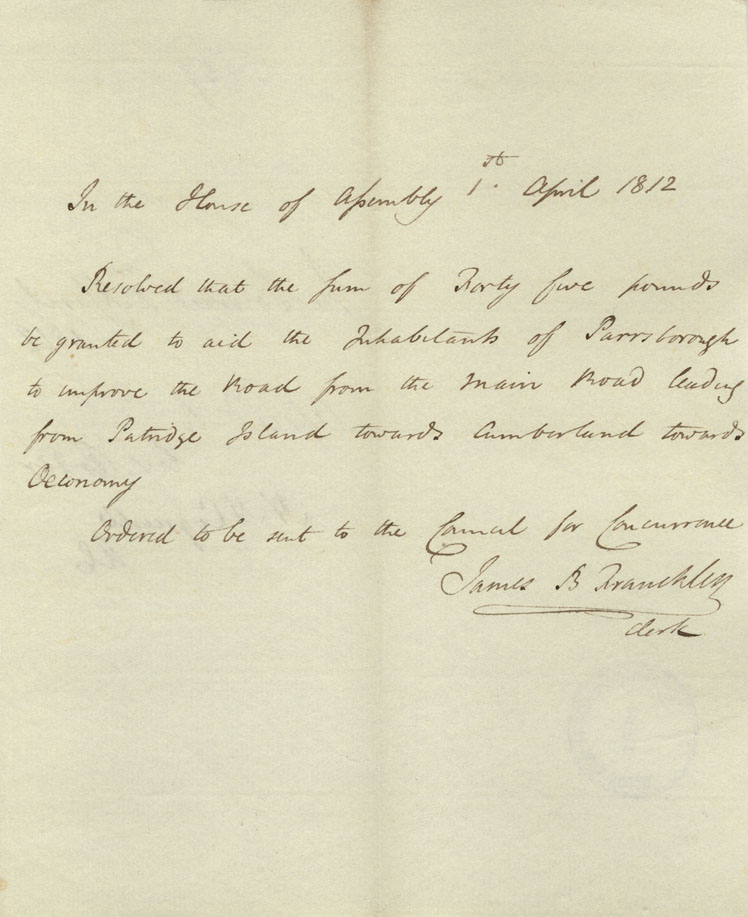 In the House of Assembly 1st. April 1812
Resolved that the sum of Forty five pounds
be granted to aid the Inhabitants of Parrsborough
to improve the Road from the main Road leading
from Patridge Island towards Cumberland towards
Oeconomy
Ordered to be sent to the Council for Concurrence
James B Franckley
Clerk